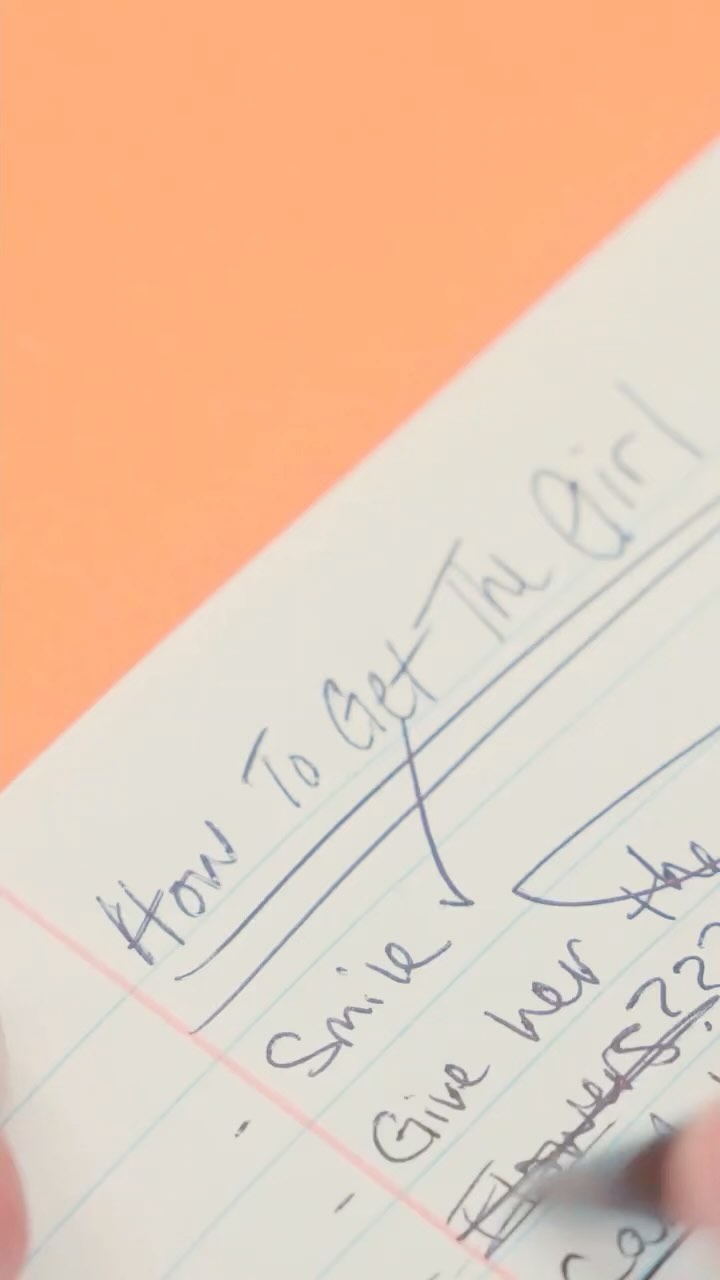 How To Get The Girl
- Smile
- Give her the
Flowers???